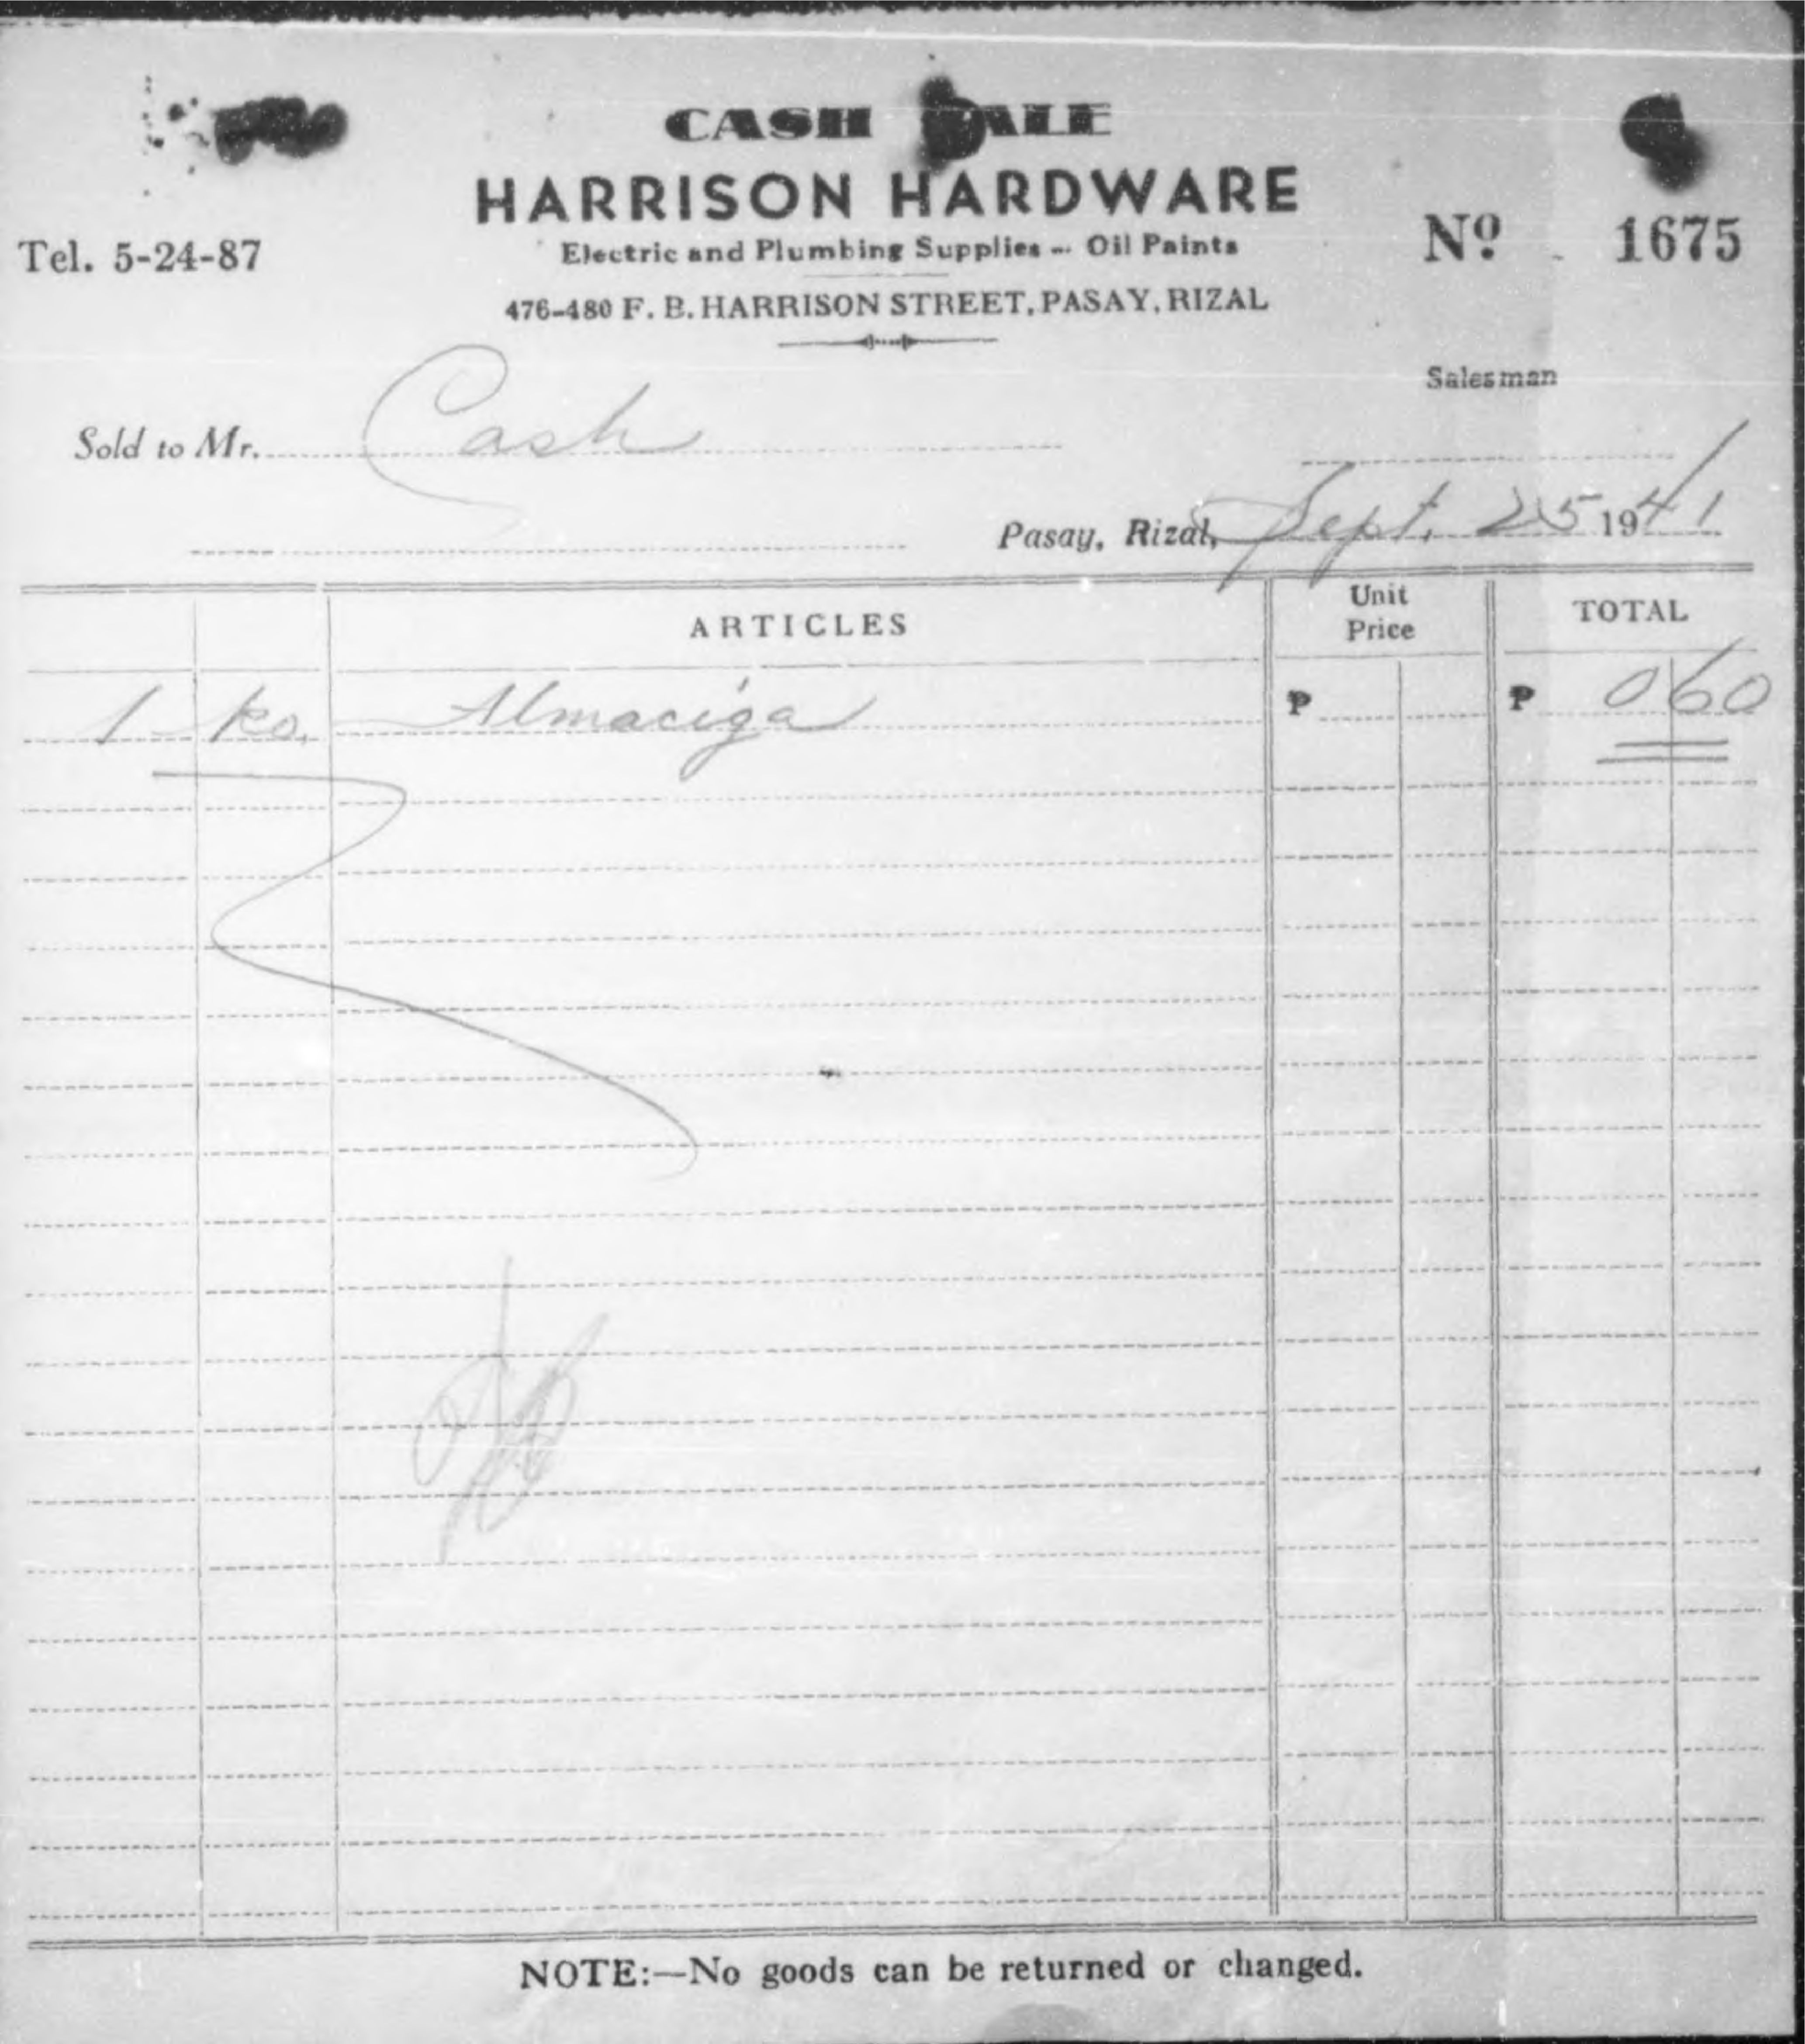 CASH SALE
HARRISON HARDWARE
Tel. 5-24-87
Electric and Plumbing Supplies -- Oil Paints
Nº 1675
476-480 F. B. HARRISON STREET, PASAY, RIZAL
Salesman
Sold to Mr. Cash
Pasay, Rizal, Sept. 25 1941
ARTICLES Unit Price TOTAL
1 ko. Almaciga ₱ ₱ 0 60
NOTE:—No goods can be returned or changed.